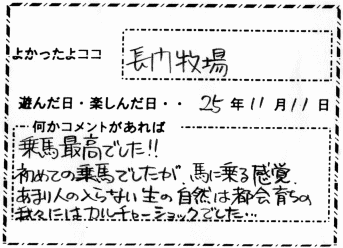 よかったよココ 長内牧場
遊んだ日・楽しんだ日・・ 25 年 11 月 11 日
何かコメントがあれば
乗馬最高でした!!
初めての乗馬でしたが、馬に乗る感覚、
あまり人の入らない生の自然は都会育ちの
私々にはカルチャーショックでした…